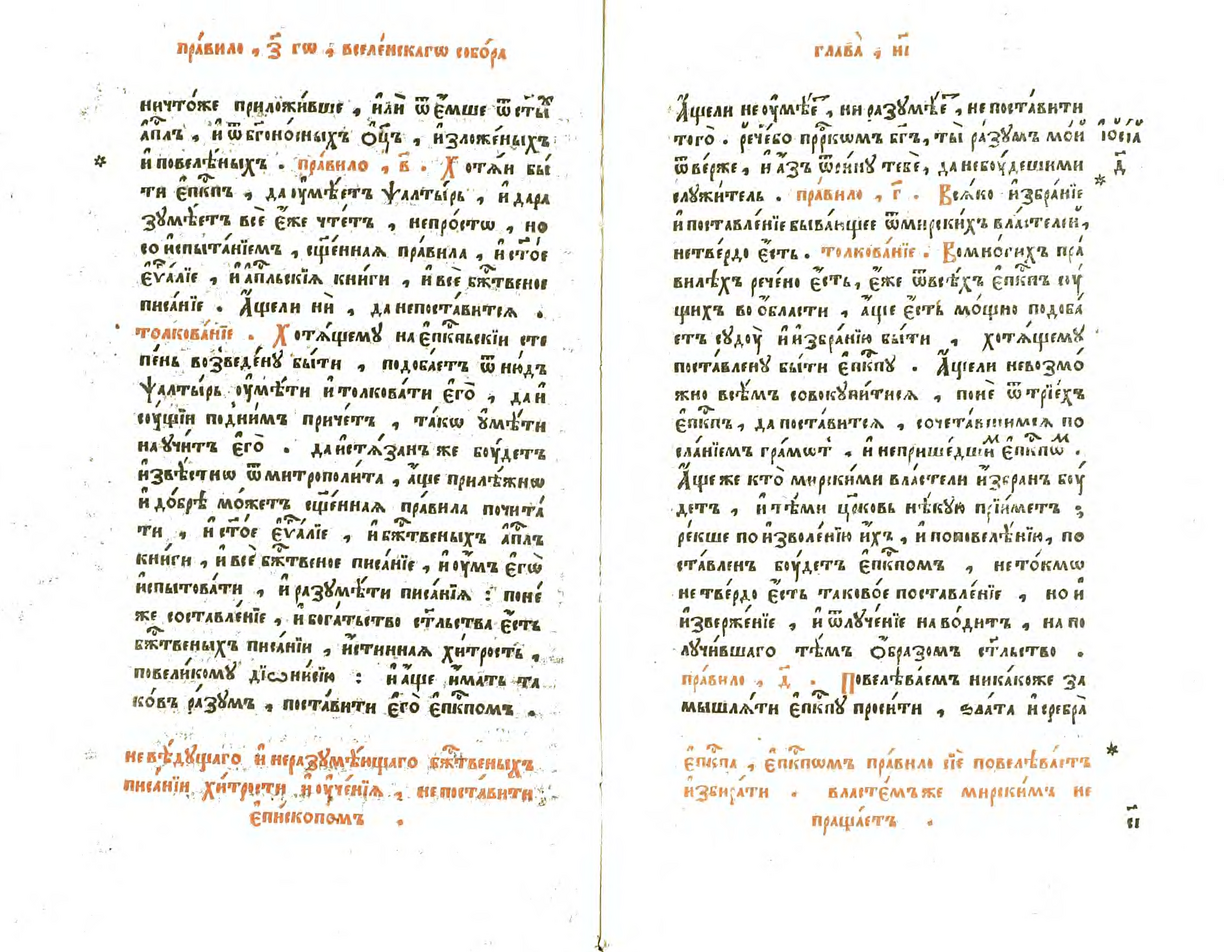 пра́вило , з҃ гѡ , вселе́нскагѡ собо́ра
ничто́же приложи́вше , и҆лѝ ѿе́мше ѿ ст҃ы́х
а҆п҃лъ , и҆ ѿ бг҃оно́сныхъ ѻ҆ц҃ъ , и҆зложе́ныхъ
* и҆ повелѣ́ныхъ . пра́вило , в҃ . Хотѧ́и бы́
ти є҆пк҃пъ , да ᲂу҆мѣ́етъ ѱалты́рь , и҆ да ра
зꙋмѣ́етъ всѐ є҆́же чте́тъ , непро́стѡ , но
со и҆спыта́нїемъ , сщ҃е́нная пра́вила , и҆ ст҃о́е
є҆ѵ҃а́лїе , и҆ а҆п҃льскїѧ кни́ги , и҆ всѐ бж҃твеное
писа́нїе . А҆́щели нѝ , да непоста́витсѧ .
толкова́нїе . Хотѧ́щемꙋ на є҆пк҃пьскїи сте
пе́нь возведе́нꙋ бы́ти , подоба́етъ ѿню́дъ
ѱалты́рь ᲂу҆мѣ́ти и҆ толкова́ти є҆го̀ , да и҆
сꙋ́щїи под ни́мъ при́четъ , та́кѡ ᲂу҆мѣ́ти
наᲂу҆чи́тъ є҆го̀ . да и҆стѧ́занъ же бꙋ́детъ
и҆звѣ́стнѡ ѿ митрополи́та , а҆́ще прилѣ́жнѡ
и҆ до́брѣ мо́жетъ сщ҃е́нная пра́вила почита́
ти , и҆ ст҃о́е є҆ѵ҃а́лїе , и҆ бж҃твеныхъ а҆п҃лъ
кни́ги , и҆ всѐ бж҃твеное писа́нїе , и҆ ᲂу҆́мъ є҆гѡ̀
и҆спытова́ти , и҆ разꙋмѣ́ти писа́нїѧ : поне́
же составле́нїе , и҆ бога́тьство ст҃льства є҆́сть
бж҃твеныхъ писа́нїи , и҆́стинная хи́трость ,
повели́комꙋ дїѡни́сїю : и҆ а҆́ще и҆́мать та
ко́въ ра́зꙋмъ , поста́вити є҆го̀ є҆пк҃помъ .
невѣ́дꙋщаго и҆ неразꙋмѣ́ющаго бж҃твеныхъ
писа́нїи хи́трости и҆ ᲂу҆че́нїѧ , непоста́вити
є҆пи́скопомъ .
глава̀ , н҃і
А҆́щели неᲂу҆мѣ́е , ни разꙋмѣ́е , непоста́вити
того̀ . рече́ бо прⷪ҇ркомъ бг҃ъ , ты̀ ра́зꙋмъ мо́и і҆ѡсі́ѧ
ѿве́рже , и҆ а҆́зъ ѿри́нꙋ тебѐ , да небꙋ́деши ми д҃
слꙋжи́тель . пра́вило , г҃ . Всѧ́ко и҆збра́нїе *
и҆ поставле́нїе быва́ющее ѿ мирски́хъ власте́ли ,
нетве́рдо є҆́сть . толкова́нїе . Во мно́гихъ пра́
вилѣхъ рече́но є҆́сть , є҆́же ѿ всѣ́хъ є҆пк҃пъ сꙋ́
щихъ во ѻ҆́бласти , а҆́ще є҆́сть мо́щно подоба́
етъ сꙋдꙋ̀ и҆ и҆збра́нїю бы́ти , хотѧ́щемꙋ
поста́вленꙋ бы́ти є҆пк҃пꙋ . А҆́щели невозмо́
жно всѣ́мъ совокꙋпи́тисѧ , понѐ ѿ трїе́хъ
є҆пк҃пъ , да поста́витсѧ , сочета́вшимсѧ по
сла́нїемъ гра́мотъ , и҆ неприше́дши́м є҆пк҃пѡм .
А҆́ще же кто̀ мирски́ми власте́ли и҆збра́нъ бꙋ́
детъ , и҆ тѣ́ми цр҃ковь нѣ́кꙋю прїи́метъ ;
ре́кше по и҆зволе́нїю и҆́хъ , и҆ по повелѣ́нїю , по
ста́вленъ бꙋ́детъ є҆пк҃помъ , нето́кмѡ
нетве́рдо є҆́сть таково́е поставле́нїе , но и҆
и҆зверже́нїе , и҆ ѿлꙋче́нїе наво́дитъ , на по
лꙋчи́вшаго тѣ́мъ ѻ҆́бразомъ ст҃льство .
пра́вило , д҃ . Повелѣва́емъ ника́коже за
мышлѧ́ти є҆пк҃пꙋ проси́ти , ѕла́та и҆ сребра̀
є҆пк҃па , є҆пк҃пѡмъ пра́вило сїѐ повелѣва́етъ *
и҆збира́ти . власте́мъ же мирски́мъ не
праща́етъ . є҃і